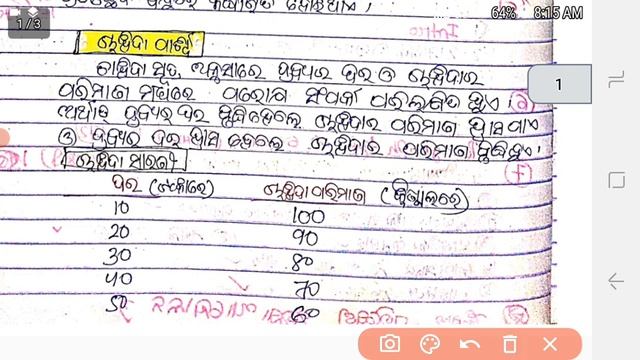 1/3
64% 8:15 AM
ଚାହିଦା ପାଇଁ
ଚାହିଦା ସୂତ୍ର ଅନୁସାରେ ଦ୍ରବ୍ୟର ଦର ଓ ଚାହିଦାର
1
ପରିମାଣ ମଧ୍ୟରେ ପରୋକ୍ଷ ସଂପର୍କ ପରିଲକ୍ଷିତ ହୁଏ।
ଅର୍ଥାତ୍ ଦ୍ରବ୍ୟର ଦର ବୃଦ୍ଧି ହେଲେ ଚାହିଦାର ପରିମାଣ ହ୍ରାସ ପାଏ
ଓ ଦ୍ରବ୍ୟର ଦର ହ୍ରାସ ହେଲେ ଚାହିଦାର ପରିମାଣ ବୃଦ୍ଧି ହୁଏ।
ଚାହିଦା ସାରଣୀ
ଦର (ଟଙ୍କାରେ) ଚାହିଦା ପରିମାଣ (କ୍ୱିଣ୍ଟାଲରେ)
10 100
20 90
30 80
40 70
50 60